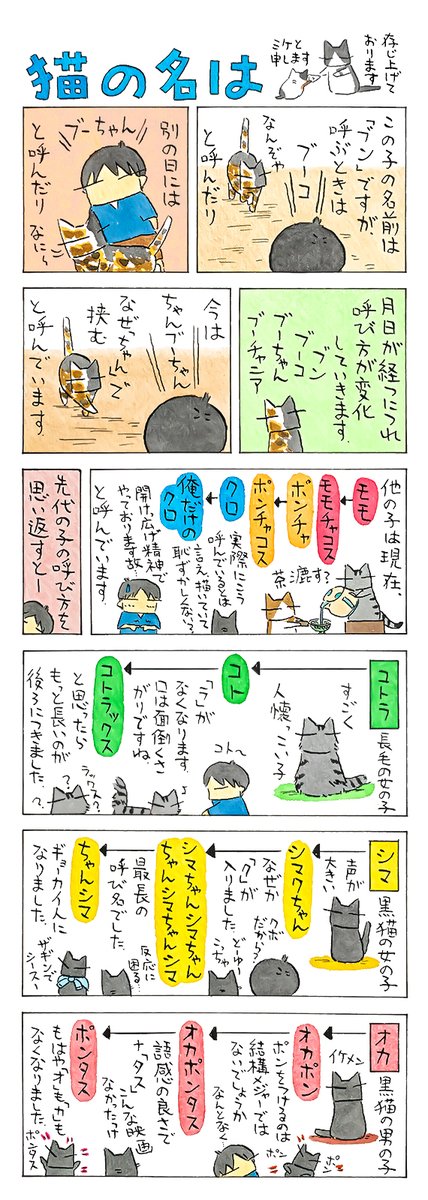 猫の名は
ミケと
申します
存じ上げて
おります
この子の名前は
「ブン」ですが、
呼ぶときは
ブーコ
なんぞや
と呼んだり
別の日には
ブーちゃん
と呼んだり
なにら
月日が経つにつれ
呼び方が変化
していきます。
ブン
ブーコ
ブーちゃん
ブーチャニア
今は
ちゃんブーちゃん
なぜ「ちゃん」で
挟む
と呼んでいます。
他の子は現在、
モモ
モモチャコス
茶漉す?
ポンチャ
ポンチャコス
クロ
俺だけの
クロ
実際にこう
呼んでいるとは
言え描いていて
恥ずかしくない?
開け広げ精神で
やっております故
と呼んでいます。
先代の子の呼び方を
思い返すとー
コトラ
長毛の女の子
すごく
人懐っこい子
コト
コト〜
「ラ」が
なくなります。
口は面倒くさ
がりですね。
コトラックス
と思ったら
もっと長いのが
後ろにつきました。
ラックス?
?
?
シマ
黒猫の女の子
声が
大きい
シマクちゃん
なぜか
「ク」が
入りました。
クボ
だから?
どゆー
こっちゃ
シマちゃんシマちゃん
ちゃんシマちゃんシマ
最長の
呼び名でした。
反応に
困る…
ちゃんシマ
ギョーカイ人に
なりました。
ザギンで
シースー
オカ
黒猫の男の子
イケメン
オカポン
ポンをつけるのは
結構メジャーでは
ないでしょうか
なんとなく
ポン
ポン
オカポンタス
語感の良さで
+「タス」
こんな映画
なかったっけ
ポンタス
もはや「オ」も「カ」も
なくなりました。
ポンタス